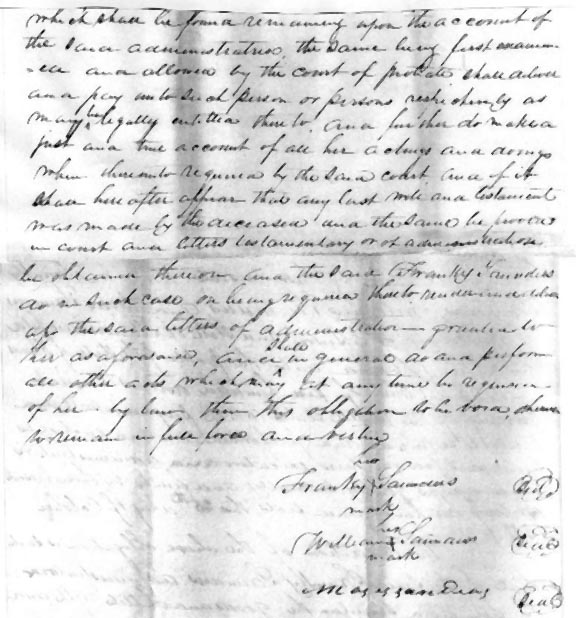 which shall be found remaining upon the account of
the said administratrix, the same being first examin
-ed and allowed by the court of probate shall deliver
and pay unto such person or persons respectively as
may be legally entitled thereto, and further do make a
just and true account of all her actings and doings
when thereunto required by the said court and if it
shall hereafter appear that any last will and testament
was made by the deceased and the same be proved
in court and letters testamentary or of administration
be obtained thereon and the said Franky Saunders
do in such case on being required thereto render
up the said letters of administration granted to
her as aforesaid, and shall in general do and perform
all other acts which may at any time be required
of her by law then this obligation to be void, otherwise
to remain in full force and virtue
her
Franky Saunders
mark
his
William Saunders
mark
Seal
Seal